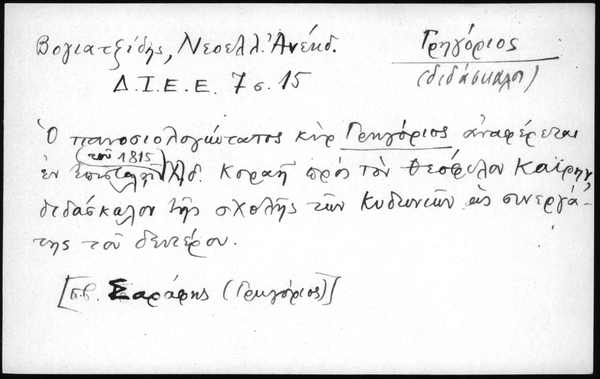 Βογιατζίδης, Νεοελλ. Ἀνέκδ.
Δ.Ι.Ε.Ε. 7 σ. 15
Γρηγόριος
(διδάσκαλος)
Ὁ πανοσιολογιώτατος κὺρ Γρηγόριος ἀναφέρεται
ἐν ἐπιστολῇ (τοῦ 1815) Ἀδ. Κοραῆ πρὸς τὸν Θεόφιλον Καΐρην,
διδάσκαλον τῆς σχολῆς τῶν Κυδωνιῶν ὡς συνεργά-
της τοῦ δευτέρου.
[πβ. Σαράφης (Γρηγόριος)]